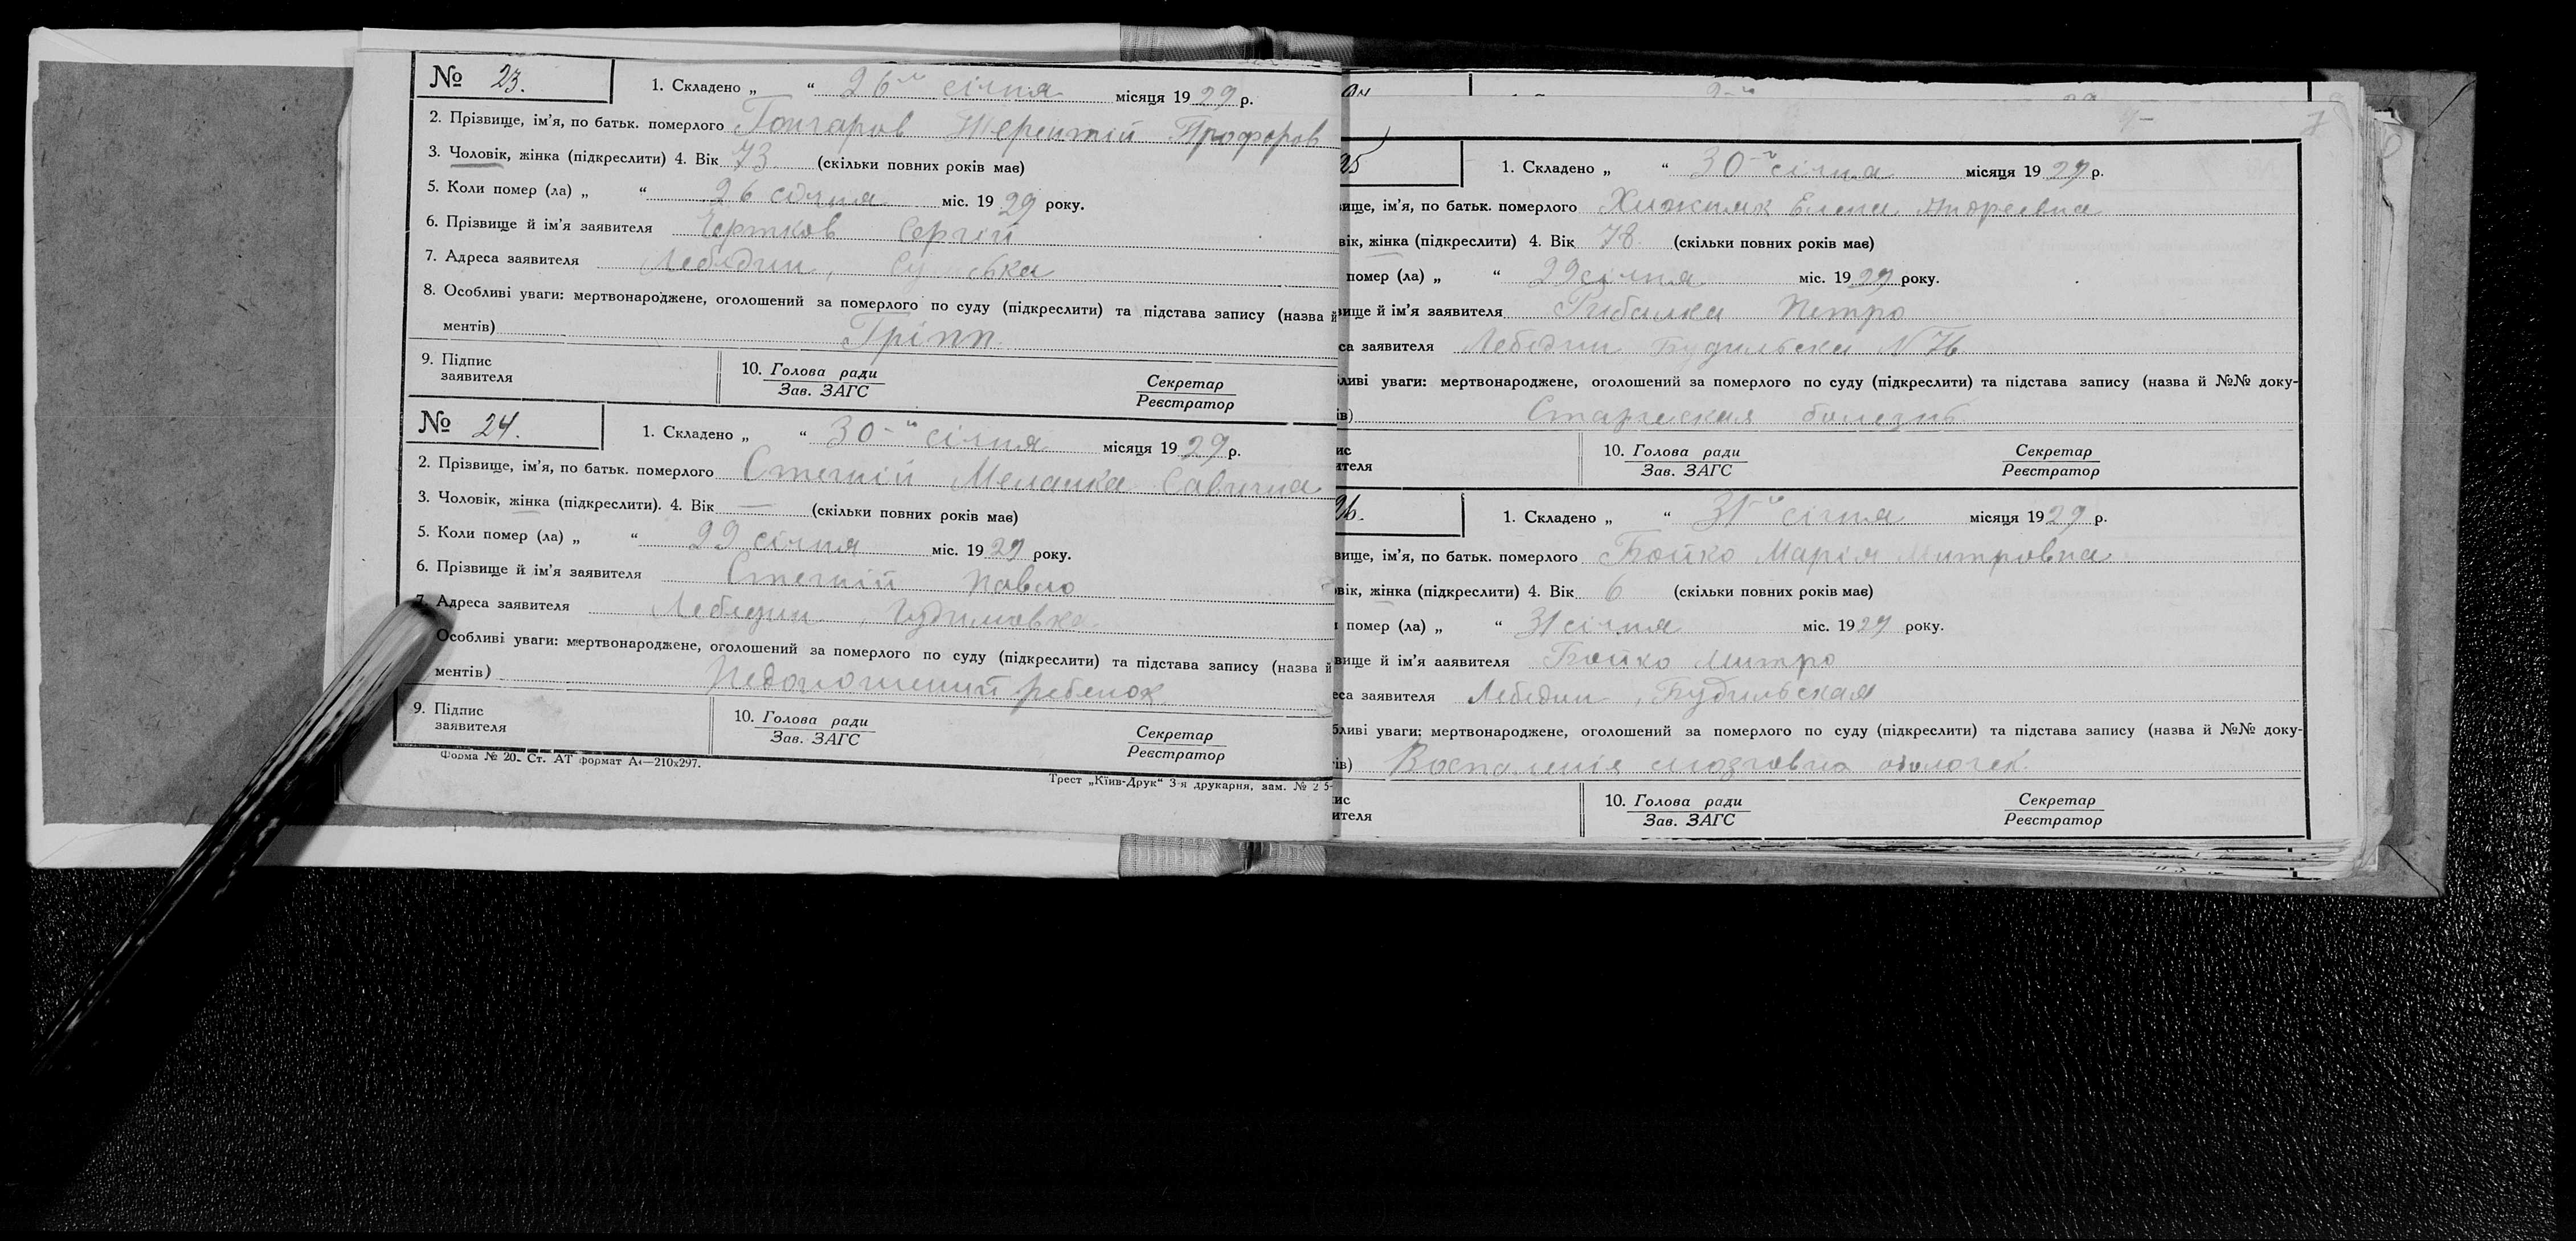 № 23.
1. Складено „ “ 26-го січня місяця 1929 р.
2. Прізвище, ім'я, по батьк. померлого Гончаров Терентій Прохоров
3. Чоловік, жінка (підкреслити) 4. Вік 73 (скільки повних років має)
5. Коли помер (ла) „ “ 26 січня міс. 1929 року.
6. Прізвище й ім'я заявителя Чертков Сергій
7. Адреса заявителя Лебедин,
8. Особливі уваги: мертвонароджене, оголошений за померлого по суду (підкреслити) та підстава запису (назва й
ментів) Гріпп
9. Підпис
заявителя
10. Голова ради
Зав. ЗАГС
Секретар
Реєстратор
№ 24.
1. Складено „ “ 30-го січня місяця 1929 р.
2. Прізвище, ім'я, по батьк. померлого Стегній Меланка Савична
3. Чоловік, жінка (підкреслити). 4. Вік — (скільки повних років має)
5. Коли помер (ла) „ “ 29 січня міс. 1929 року.
6. Прізвище й ім'я заявителя Стегній Павло
7. Адреса заявителя Лебедин, Гудимовка
Особливі уваги: мертвонароджене, оголошений за померлого по суду (підкреслити) та підстава запису (назва й
ментів) Недоношений ребенок
9. Підпис
заявителя
10. Голова ради
Зав. ЗАГС
Секретар
Реєстратор
Форма № 20. Ст. АТ формат А4—210х297.
Трест „Київ-Друк“ 3-я друкарня, зам. № 2 5-
25
1. Складено „ “ 30-го січня місяця 1929 р.
вище, ім'я, по батьк. померлого Хижняк Елена Андреевна
вік, жінка (підкреслити) 4. Вік 78 (скільки повних років має)
помер (ла) „ “ 29 січня міс. 1929 року.
вище й ім'я заявителя Рибалка Петро
са заявителя Лебедин Будильська N 76
ливі уваги: мертвонароджене, оголошений за померлого по суду (підкреслити) та підстава запису (назва й №№ доку-
ів) Старческая болезнь
ис
ителя
10. Голова ради
Зав. ЗАГС
Секретар
Реєстратор
26.
1. Складено „ “ 31-го січня місяця 1929 р.
вище, ім'я, по батьк. померлого Бойко Марія Митровна
вік, жінка (підкреслити) 4. Вік 6 (скільки повних років має)
помер (ла) „ “ 31 січня міс. 1929 року.
вище й ім'я аявителя Бойко Митро
еса заявителя Лебедин, Будильская
бливі уваги: мертвонароджене, оголошений за померлого по суду (підкреслити) та підстава запису (назва й №№ доку-
ів) Воспаленія мозгових оболочек
ис
ителя
10. Голова ради
Зав. ЗАГС
Секретар
Реєстратор